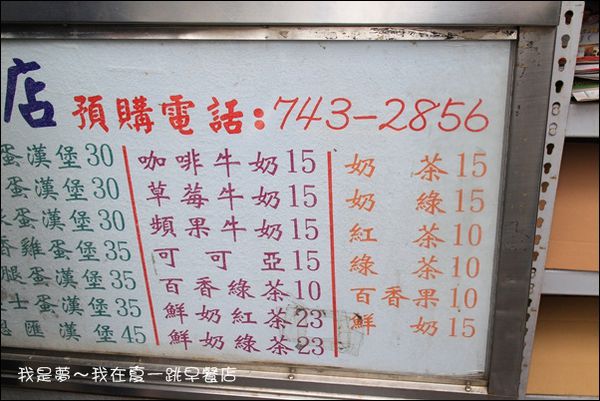 店 預購電話:743-2856
蛋漢堡30
蛋漢堡30
蛋漢堡30
香雞蛋堡35
腿蛋漢堡35
士蛋漢堡35
匯漢堡45
咖啡牛奶15
草莓牛奶15
蘋果牛奶15
可可亞15
百香綠茶10
鮮奶紅茶23
鮮奶綠茶23
奶茶15
奶綠15
紅茶10
綠茶10
百香果10
鮮奶15
我是夢～我在夏一跳早餐店